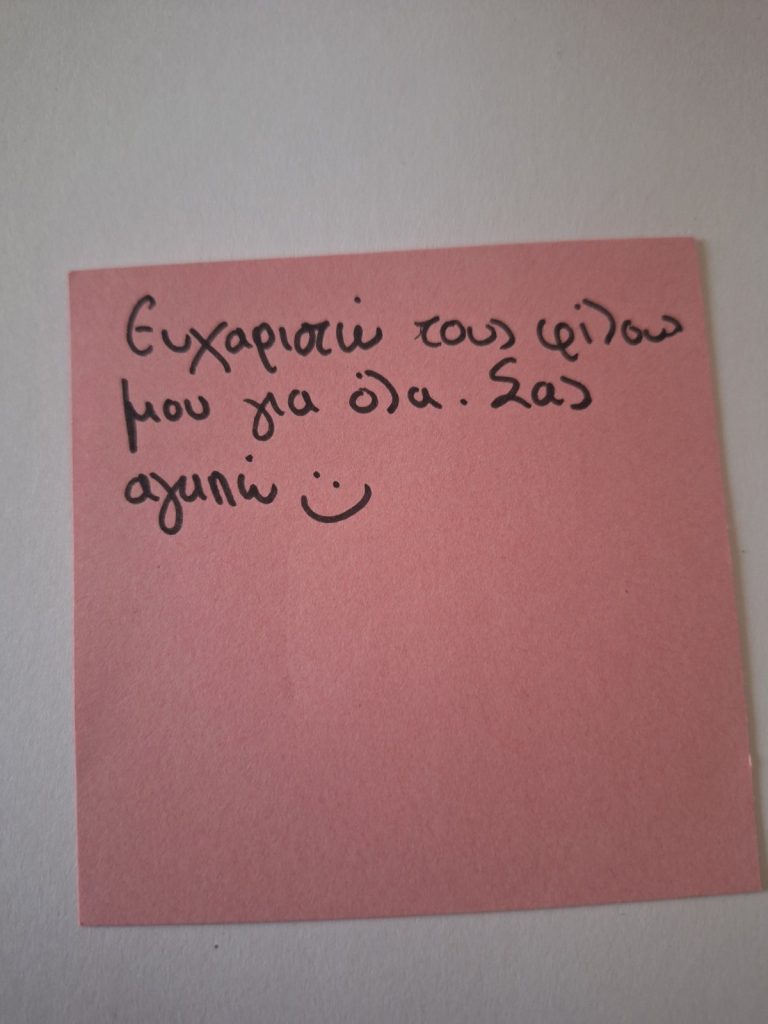 Ευχαριστώ τους φίλους
μου για όλα. Σας
αγαπώ :)